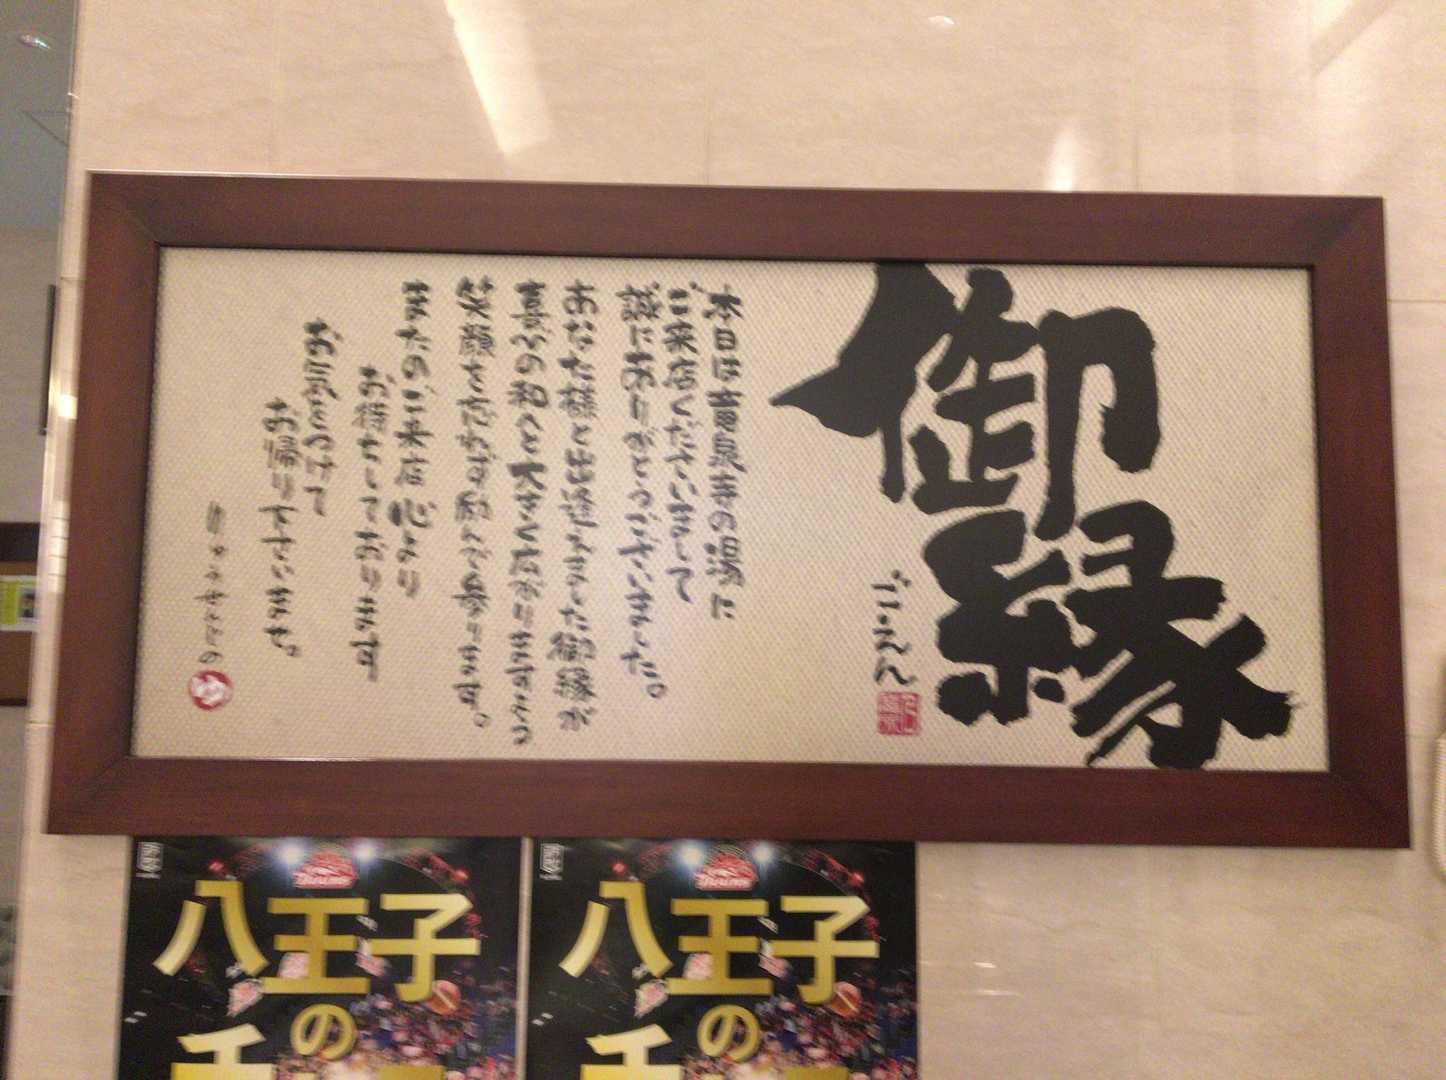 御縁
ご・えん
本日は竜泉寺の湯に
ご来店くださいまして
誠にありがとうございました。
あなた様と出逢えました御縁が
喜びの和へと大きく広がりますよう
笑顔をたやさず励んで参ります。
またのご来店心より
お待ちしております
お気をつけて
お帰り下さいませ。
八王子
の
八王子
の